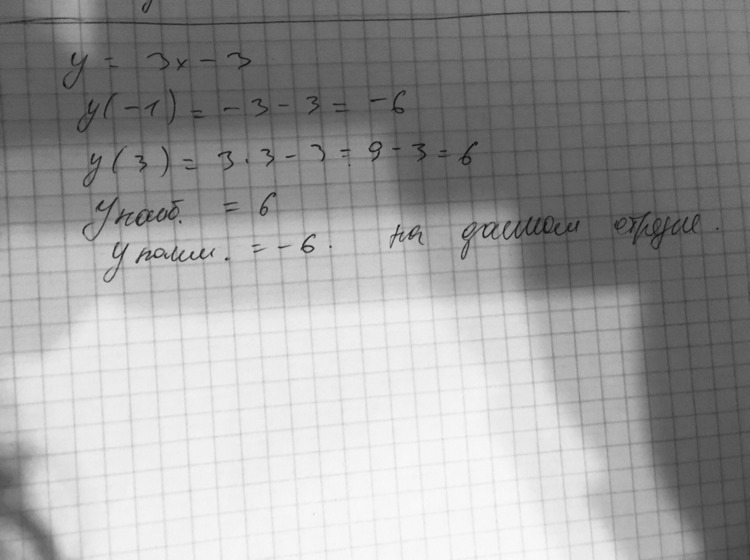 y = 3x - 3
y(-1) = -3 - 3 = -6
y(3) = 3 · 3 - 3 = 9 - 3 = 6
y наиб. = 6
y наим. = -6. на данном отрезке.